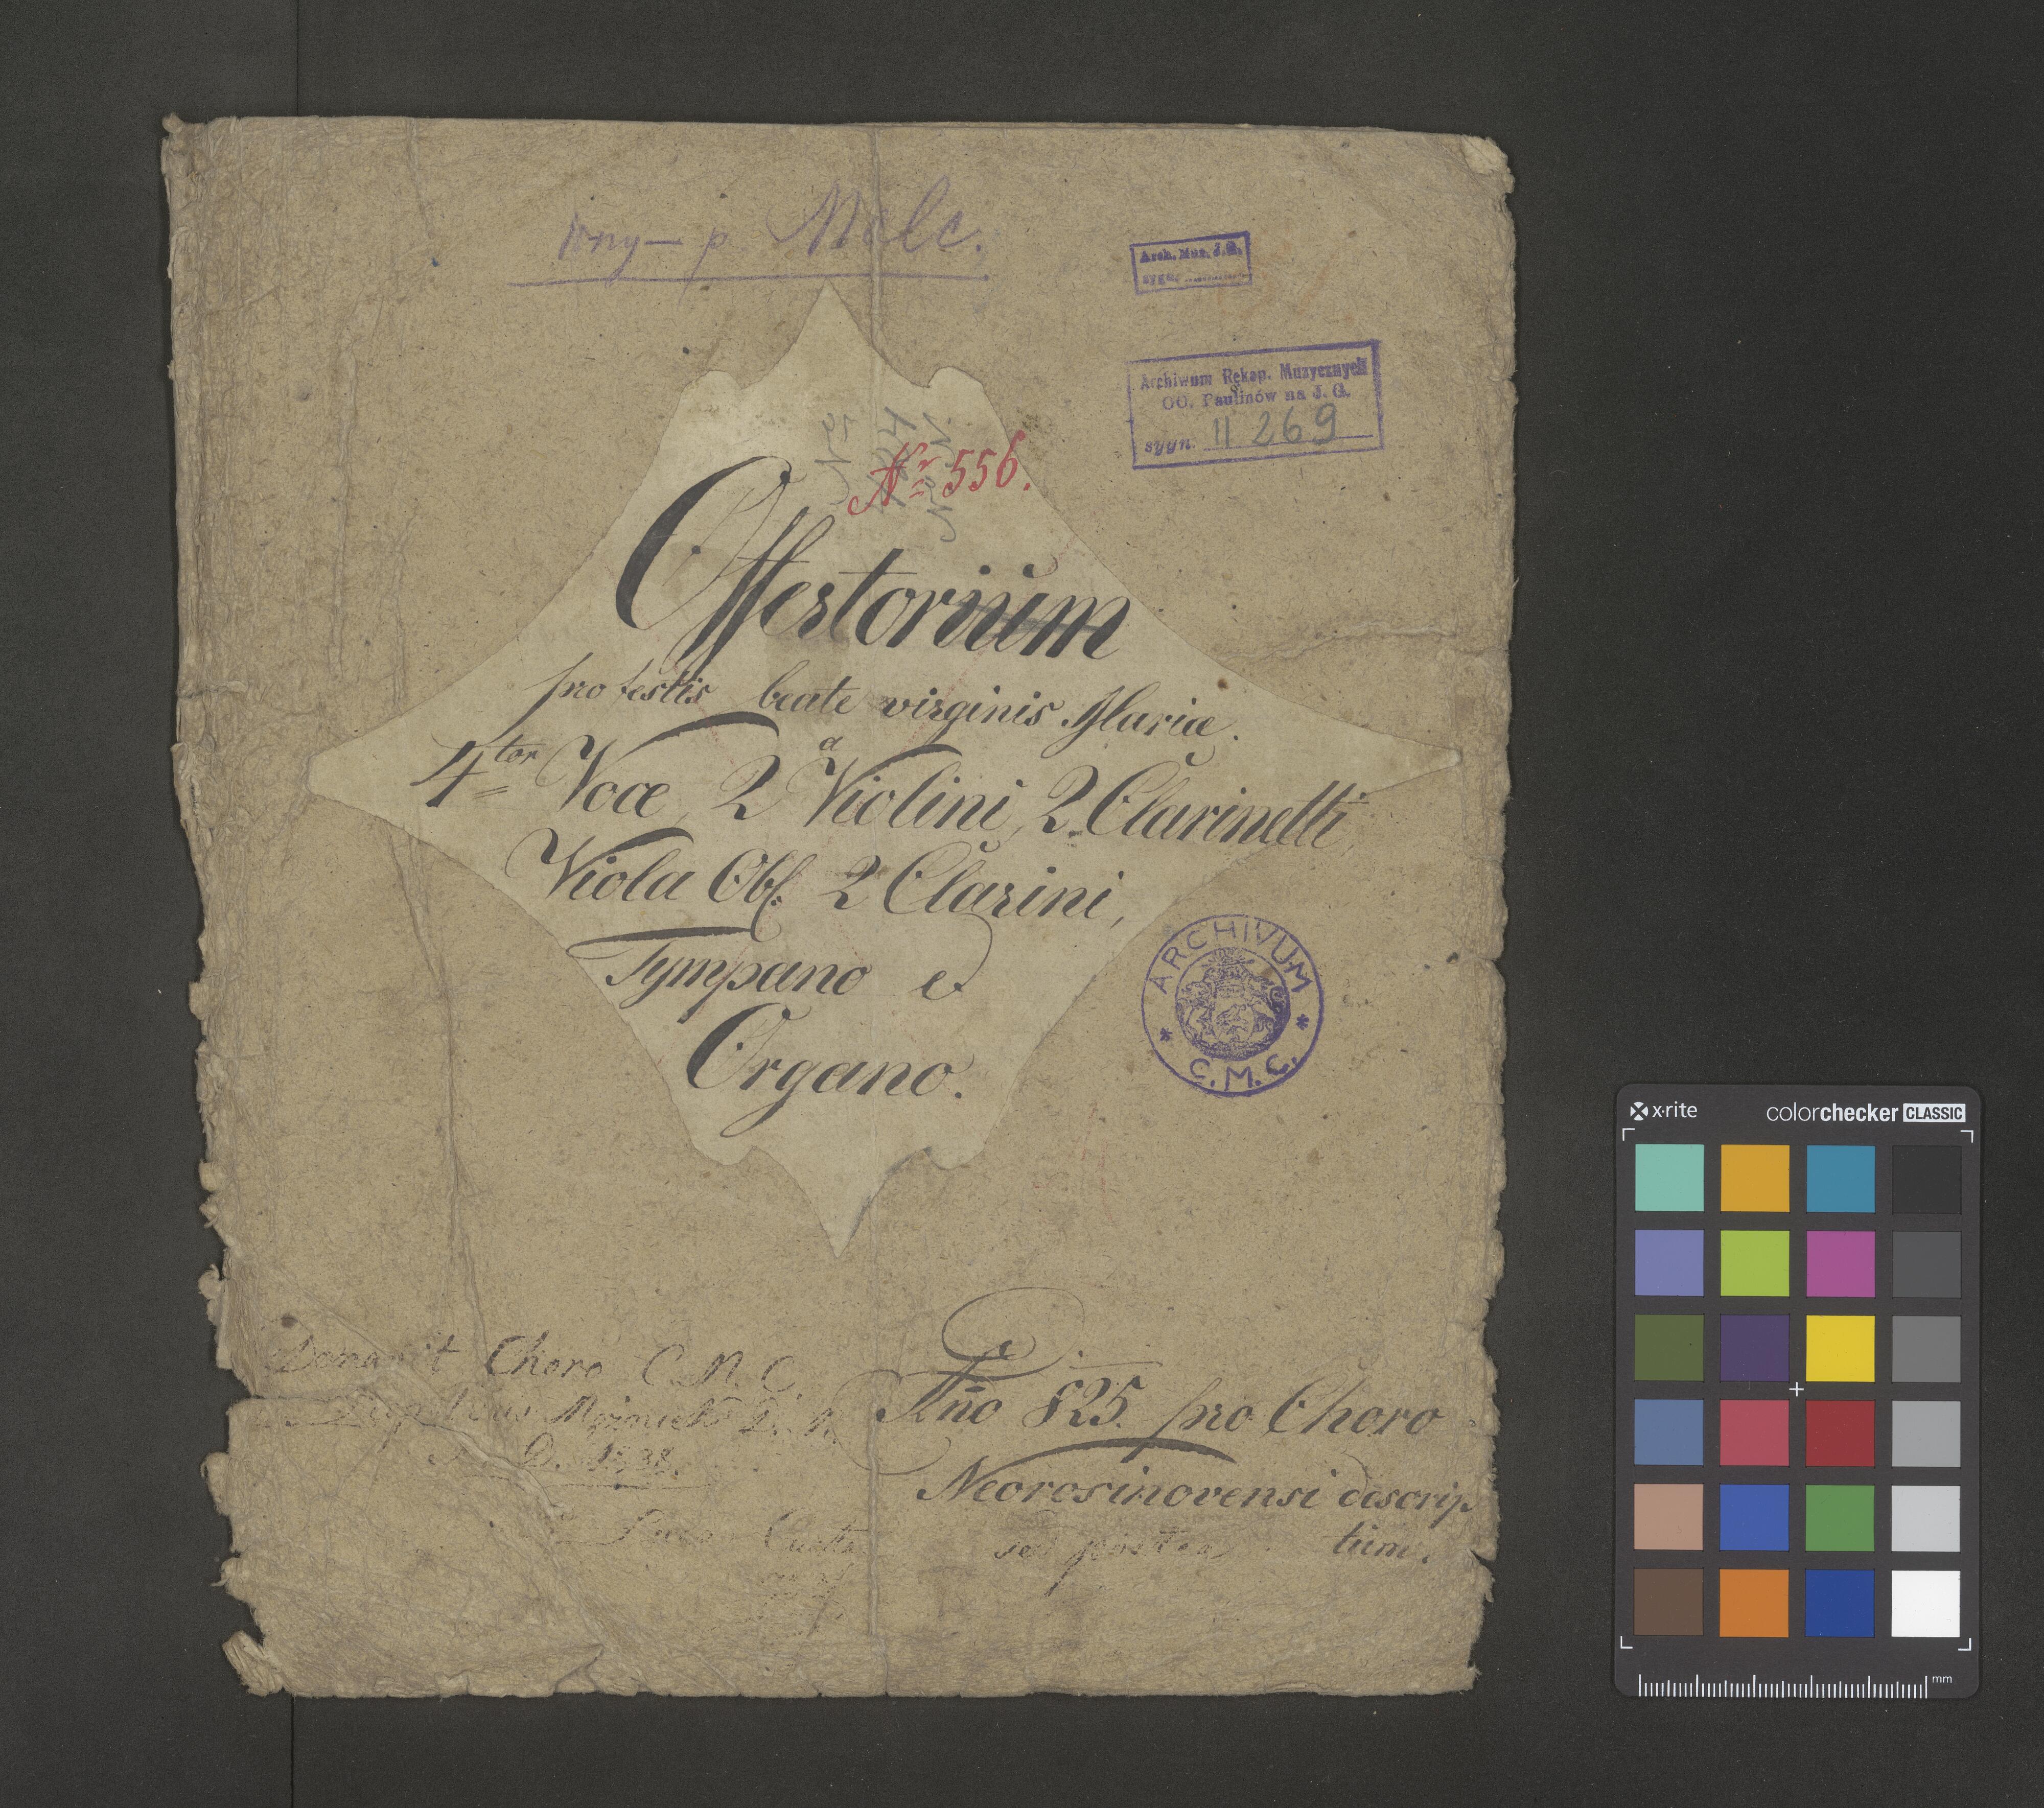 Melc.
Arch. Muz. J. G.
sygn.
Archiwum Rękop. Muzycznych
OO. Paulinów na J. G.
sygn. II 269
Nr 556.
Offertorium
pro festis beate virginis Mariæ.
a
4tor Voce, 2 Violini, 2 Clarinetti,
Viola Obl. 2 Clarini,
Tympano et
Organo.
ARCHIVUM
C. M. C.
Donavit Choro C. M. C.
D. 1838.
Año 825. pro Choro
Neorosinovensi descrip
tum.
sed postea
x-rite
colorchecker CLASSIC
mm